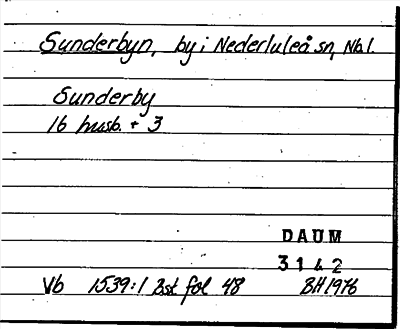 Sunderbyn, by i Nederluleå sn, Nb l.
Sunderby
16 husb. + 3
DAUM
3142
Vb 1539:1 Bst fol 48 BH 1976